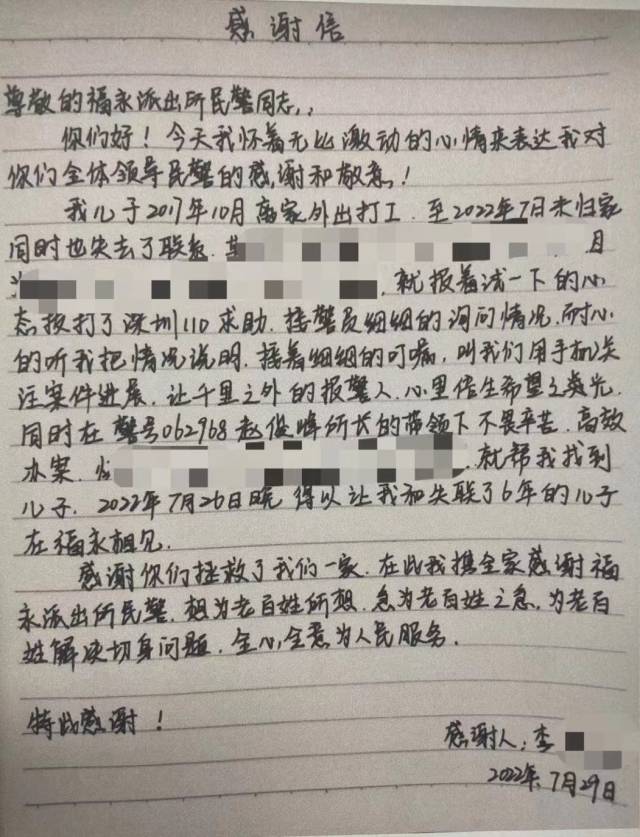 感谢信
尊敬的福永派出所民警同志：
你们好！今天我怀着无比激动的心情来表达我对
你们全体领导民警的感谢和敬意！
我儿子2017年10月离家外出打工．至2022年7月未归家
同时也失去了联系．某 月
就报着试一下的心
态按打了深圳110求助．接警员细细的询问情况．耐心
的听我把情况说明．接着细细的叮嘱，叫我们用手机关
注案件进展．让千里之外的报警人．心里倍生希望之炎光．
同时在警号062968赵俊峰所长的带领下不畏辛苦．高效
办案． 就帮我找到
儿子．2022年7月26日晚 得以让我和失联了6年的儿子
在福永相见．
感谢你们拯救了我们一家．在此我携全家感谢福
永派出所民警．想为老百姓所想．急为老百姓之急．为老百
姓解决切身问题．全心全意为人民服务．
特此感谢！
感谢人：李
2022年7月29日